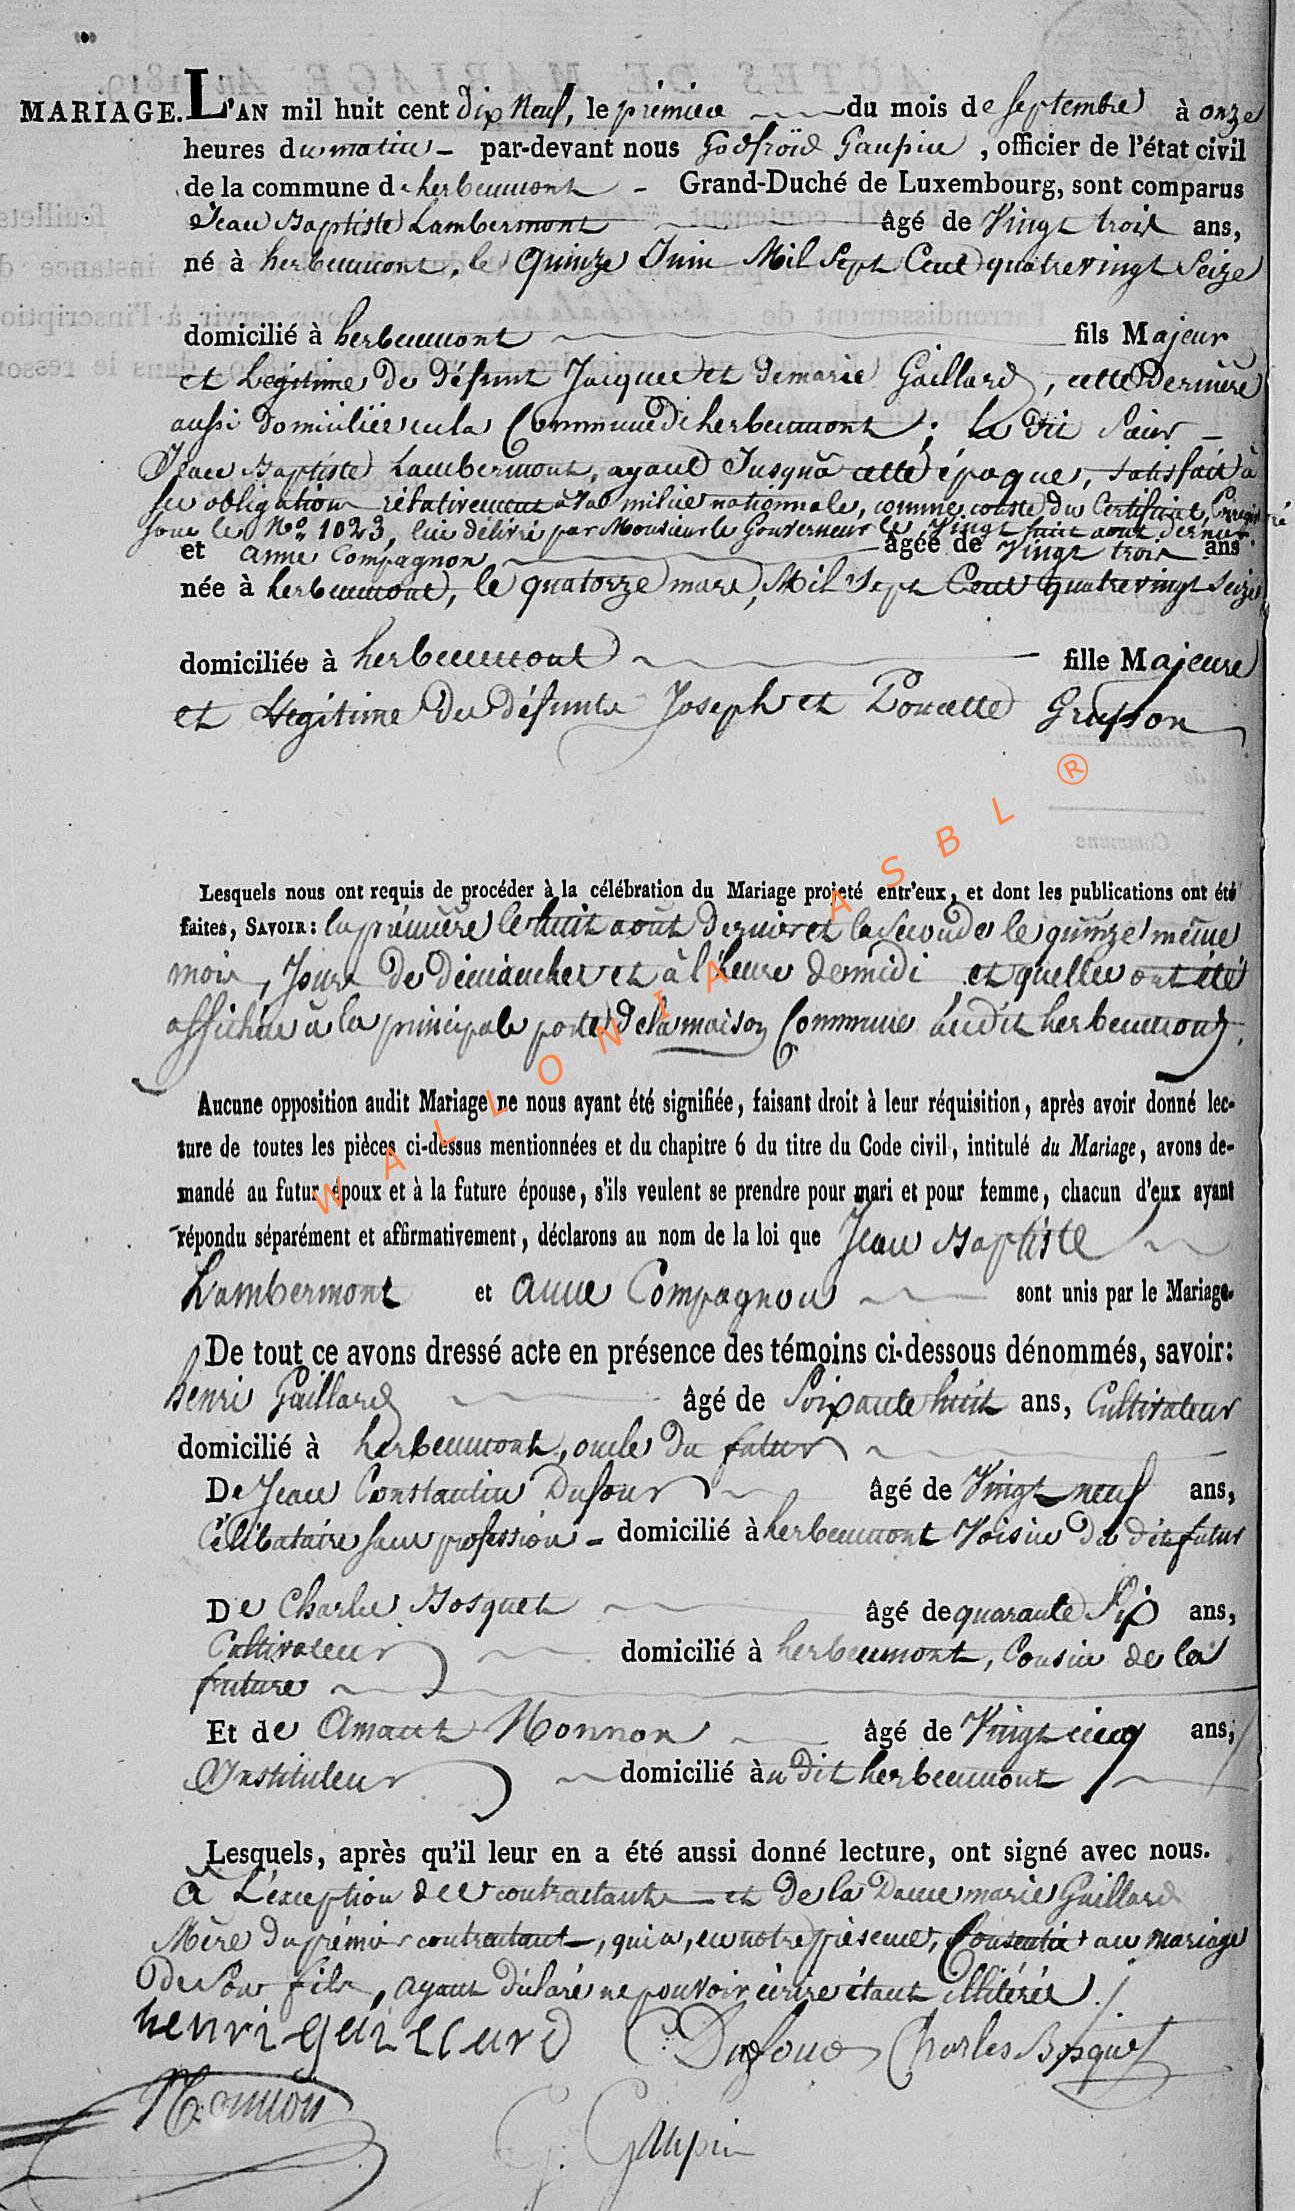 MARIAGE. L'AN mil huit cent dix Neuf, le prémier du mois de septembre à onze
heures du matin - par-devant nous Godfroid Gaupin, officier de l'état civil
de la commune de herbeumont - Grand-Duché de Luxembourg, sont comparus
Jean Baptiste Lambermont âgé de Vingt trois ans,
né à herbeumont, le Quinze Juin Mil Sept Cent quatrevingt Seize
domicilié à herbeumont fils Majeur
et Legitime de défunt Jacques et de marie Gaillard, cette Derniere
aussi domiciliée en la Commune de herbeumont ; Le dit Sieur -
Jean Baptiste Lambermont, ayant Jusqu'à cette époque, satisfait à
ses obligations rélativement à la milice nationnale, comme conste du Certificat, Enregistré
sous le No. 1023, lui délivré par Monsieur le Gouverneur le Vingt huit aout dernier.
et anne Compagnon âgée de Vingt trois ans
née à herbeumont, le quatorze mars, Mil Sept Cent quatrevingt Seize
domiciliée à herbeumont fille Majeure
et Légitime des défunts Joseph et Poncette Grusson
Lesquels nous ont requis de procéder à la célébration du Mariage projeté entr'eux, et dont les publications ont été
faites, SAVOIR : la prémière le huit août dernier et la Seconde le quinze même
mois, Jours de dimanches et à l'heure de midi et quelles ont été
affichées à la principale porte de la maison Commune audit herbeumont.
Aucune opposition audit Mariage ne nous ayant été signifiée, faisant droit à leur réquisition, après avoir donné lec-
ture de toutes les pièces ci-dessus mentionnées et du chapitre 6 du titre du Code civil, intitulé du Mariage, avons de-
mandé au futur époux et à la future épouse, s'ils veulent se prendre pour mari et pour femme, chacun d'eux ayant
répondu séparément et affirmativement, déclarons au nom de la loi que Jean Baptiste
Lambermont et anne Compagnon sont unis par le Mariage.
De tout ce avons dressé acte en présence des témoins ci-dessous dénommés, savoir:
henri Gaillard âgé de Soixante huit ans, Cultivateur
domicilié à herbeumont, oncle du futur
De Jean Constantin Dufour âgé de Vingt neuf ans,
Célibataire sans profession - domicilié à herbeumont Voisin du dit futur
De Charles Bosquet âgé de quarante Six ans,
Cultivateur domicilié à herbeumont, Cousin de la
future
Et de Amant Nonnon âgé de Vingt cinq ans,
Instituteur domicilié au dit herbeumont
Lesquels, après qu'il leur en a été aussi donné lecture, ont signé avec nous.
à L'exception des contractants et de la Dame marie Gaillard
Mère du prémier contractant, qui a, en notre présence, Consentie au mariage
de Son fils, ayant déclaré ne pouvoir écrire étant illitérés.
henri guillard C: Dufour Charles Bosquet
Nonnon G. Gaupin
WALLONIA ASBL ®